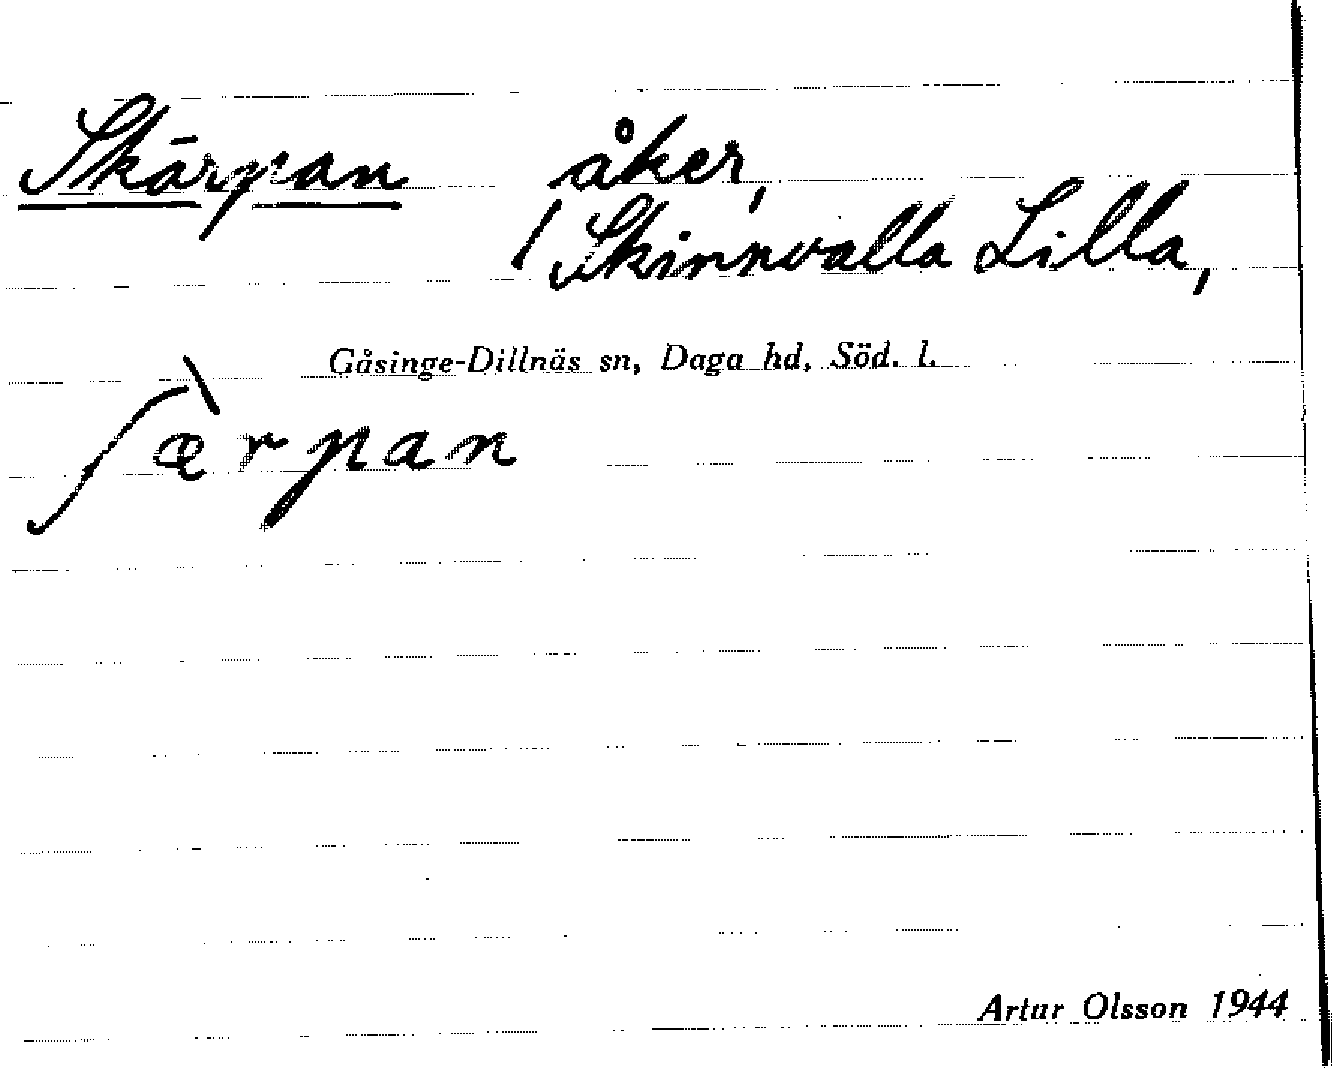 Skärpan åker,
/ Skinnvalla Lilla,
Gåsinge-Dillnäs sn, Daga hd, Söd. l.
ʃæ̀rpan
Artur Olsson 1944